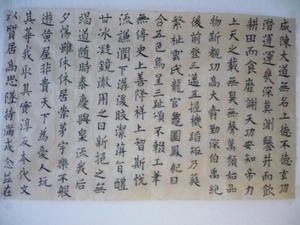 咸陳大道無名上德不德玄功
潛運幾深莫測鑿井而飲
耕田而食靡謝天功安知帝力
上天之載無臭無聲萬類始品
物斯穎功高大舜勤深伯禹絶
後前登三邁五握機蹈矩乃
繁祉雲氏龍官龜圖鳳紀日
合五色烏呈三趾頌不輟工筆
無停史上善降祥上智斯悅
流謙潤下潺湲皎潔蓱旨醴
甘冰凝鏡澈用之日新挹之無
竭道隨時泰慶與泉流我后
夕惕雖休休居崇茅宇樂不般
遊黃屋非貴天下為憂人玩
其華我取其實淳反本代文
以質居高思墜持滿戒念茲在